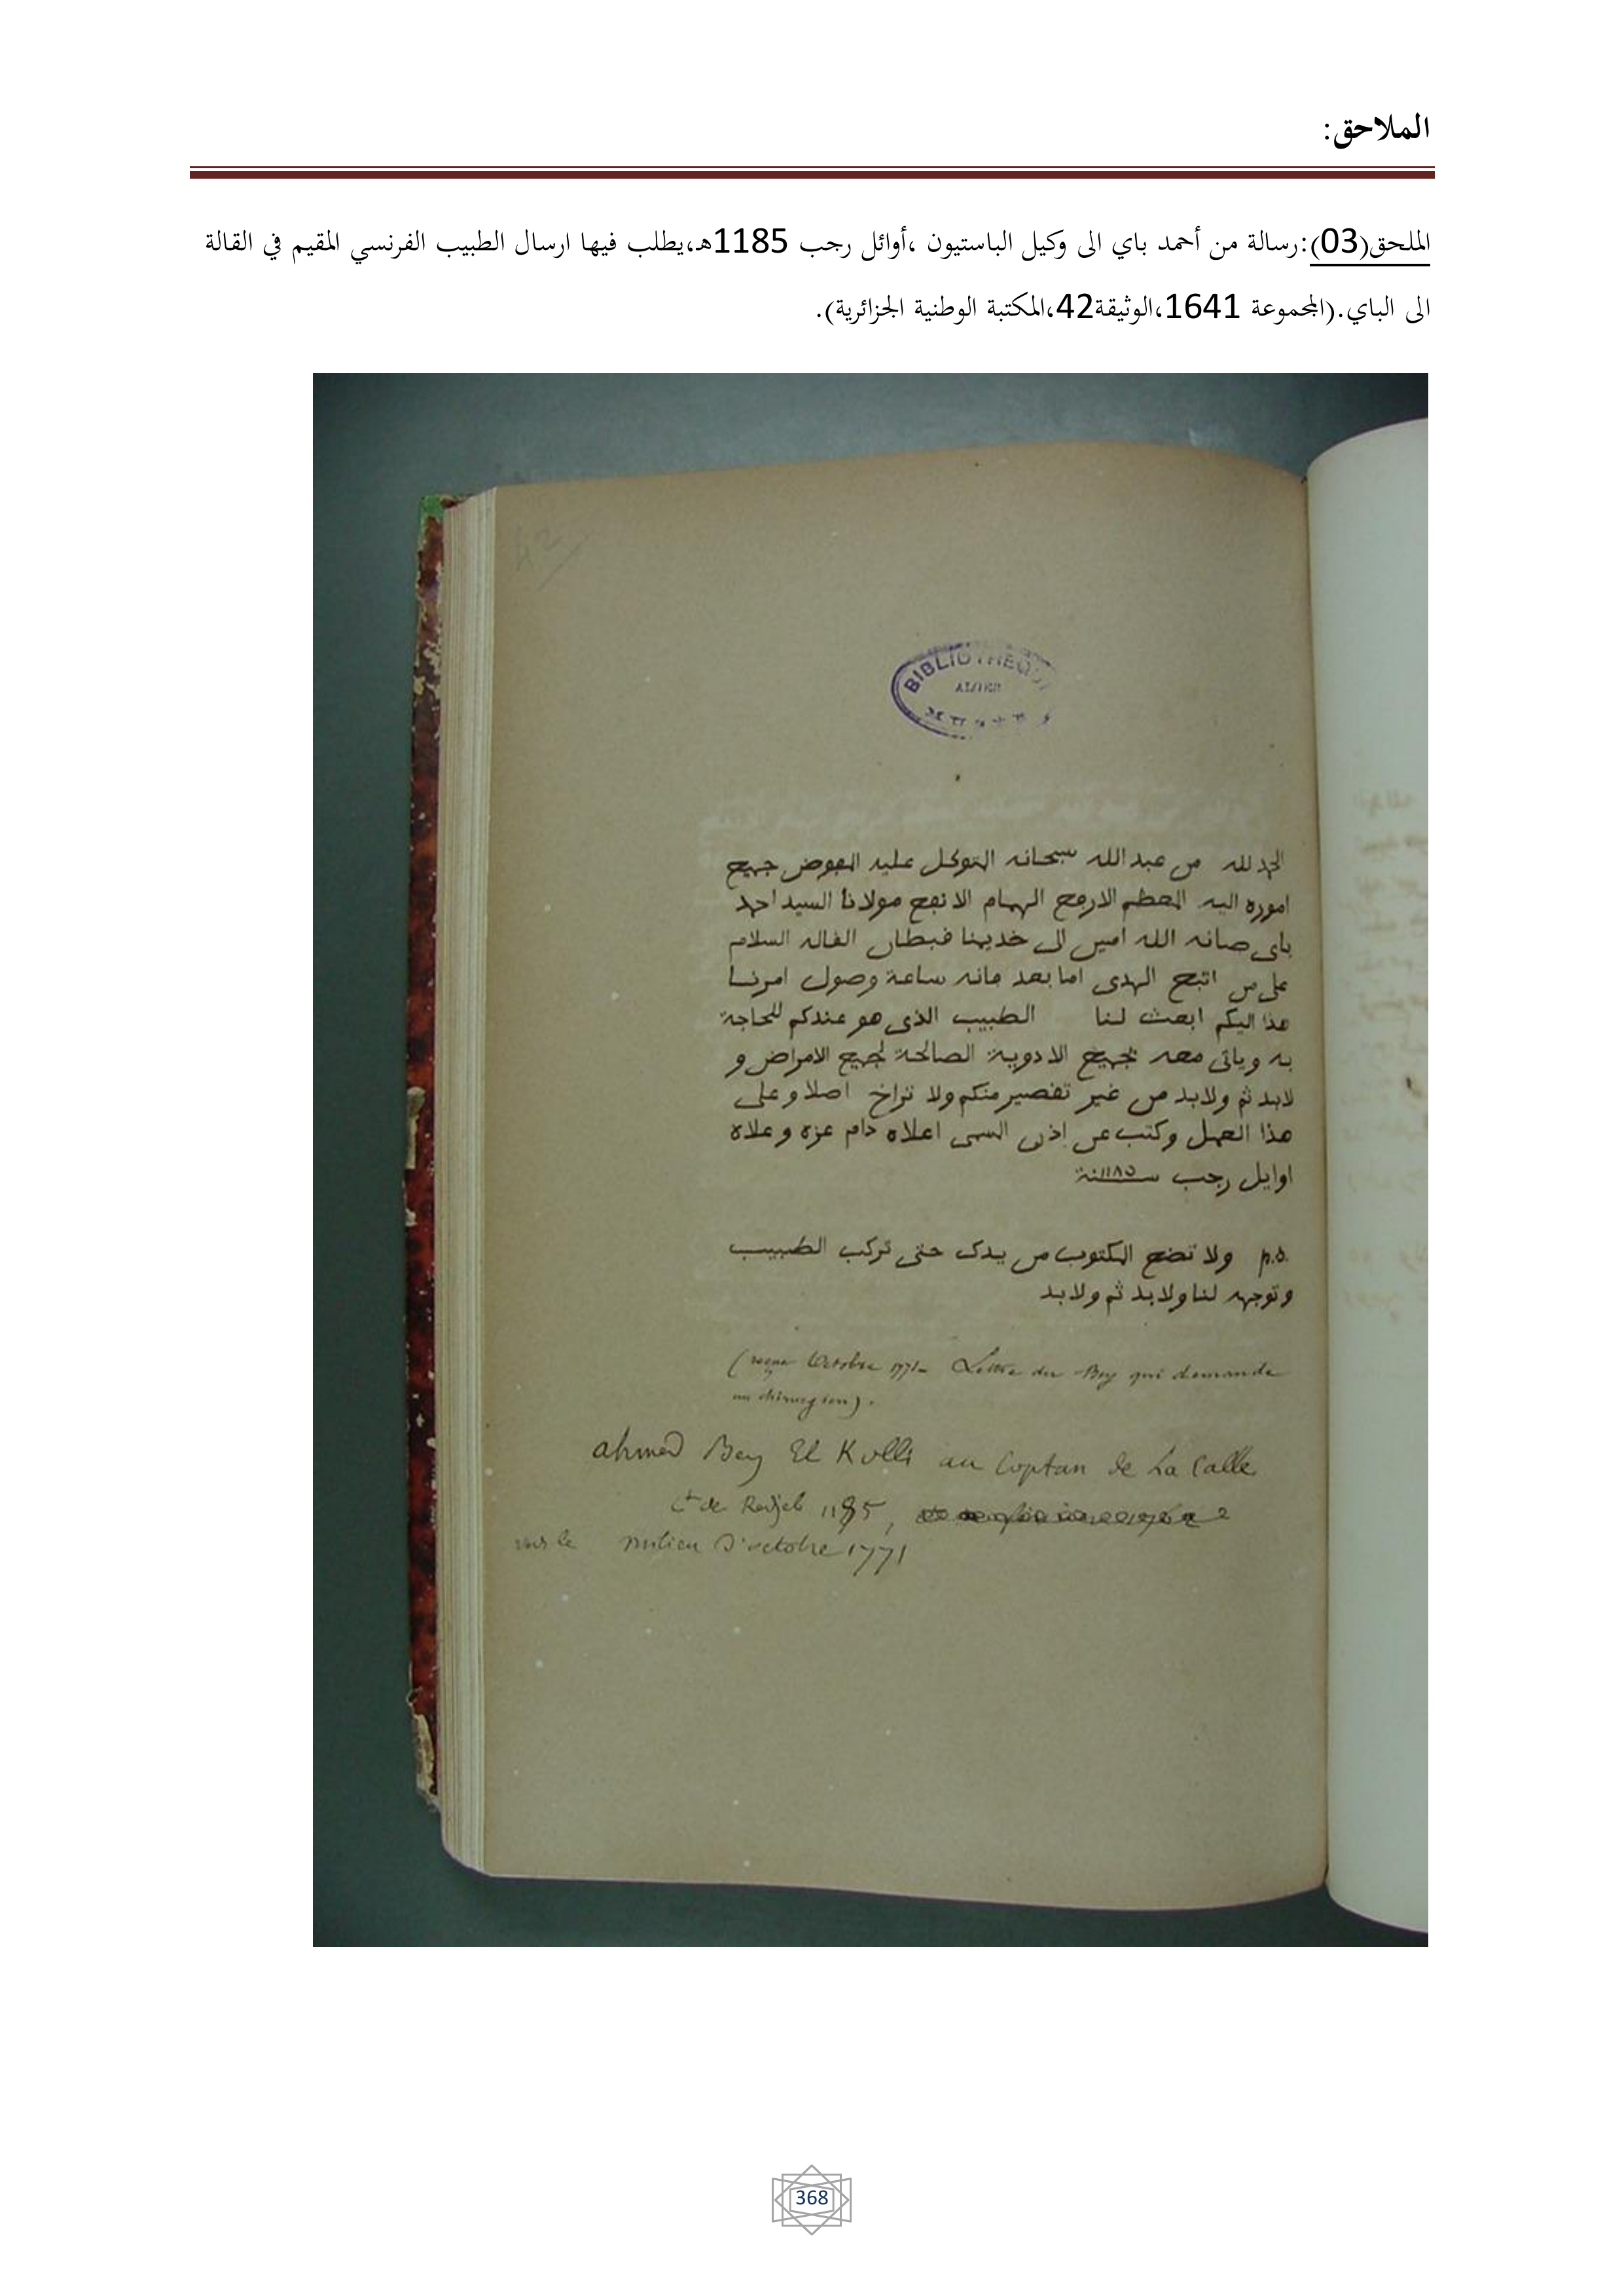 الملاحق:
الملحق(03):رسالة من أحمد باي الى وكيل الباستيون ،أوائل رجب 1185هـ،يطلب فيها ارسال الطبيب الفرنسي المقيم في القالة
الى الباي.(المجموعة 1641،الوثيقة42،المكتبة الوطنية الجزائرية).
42
BIBLIOTHEQU
الحمد لله من عبد الله سبحانه المتوكل عليه المفوض جميع
اموره اليه المعظم الارفع الهمام الانفع مولانا السيد احمد
باي صانه الله امين الى خديمنا قبطان القاله السلام
على من اتبع الهدى اما بعد فانه ساعة وصول امرنا
هذا اليكم ابعث لنا الطبيب الذي هو عندكم للحاجة
به وياتي معه بجميع الادوية الصالحة لجميع الامراض و
لابد ثم ولابد من غير تقصير منكم ولا تراخ اصلا وعلى
هذا العمل وكتب عن اذن المسمى اعلاه دام عزه وعلاه
اوايل رجب سنة ١١٨٥
p.s. ولا تضع المكتوب من يدك حتى تركب الطبيب
وتوجهه لنا ولابد ثم ولابد
(reçue Octobre 1771 - Lettre du Bey qui demande
un chirurgien).
ahmed Bey El Kolli au Coptan de La Calle
de Redjeb 1185,
vers le milieu d'octobre 1771
368